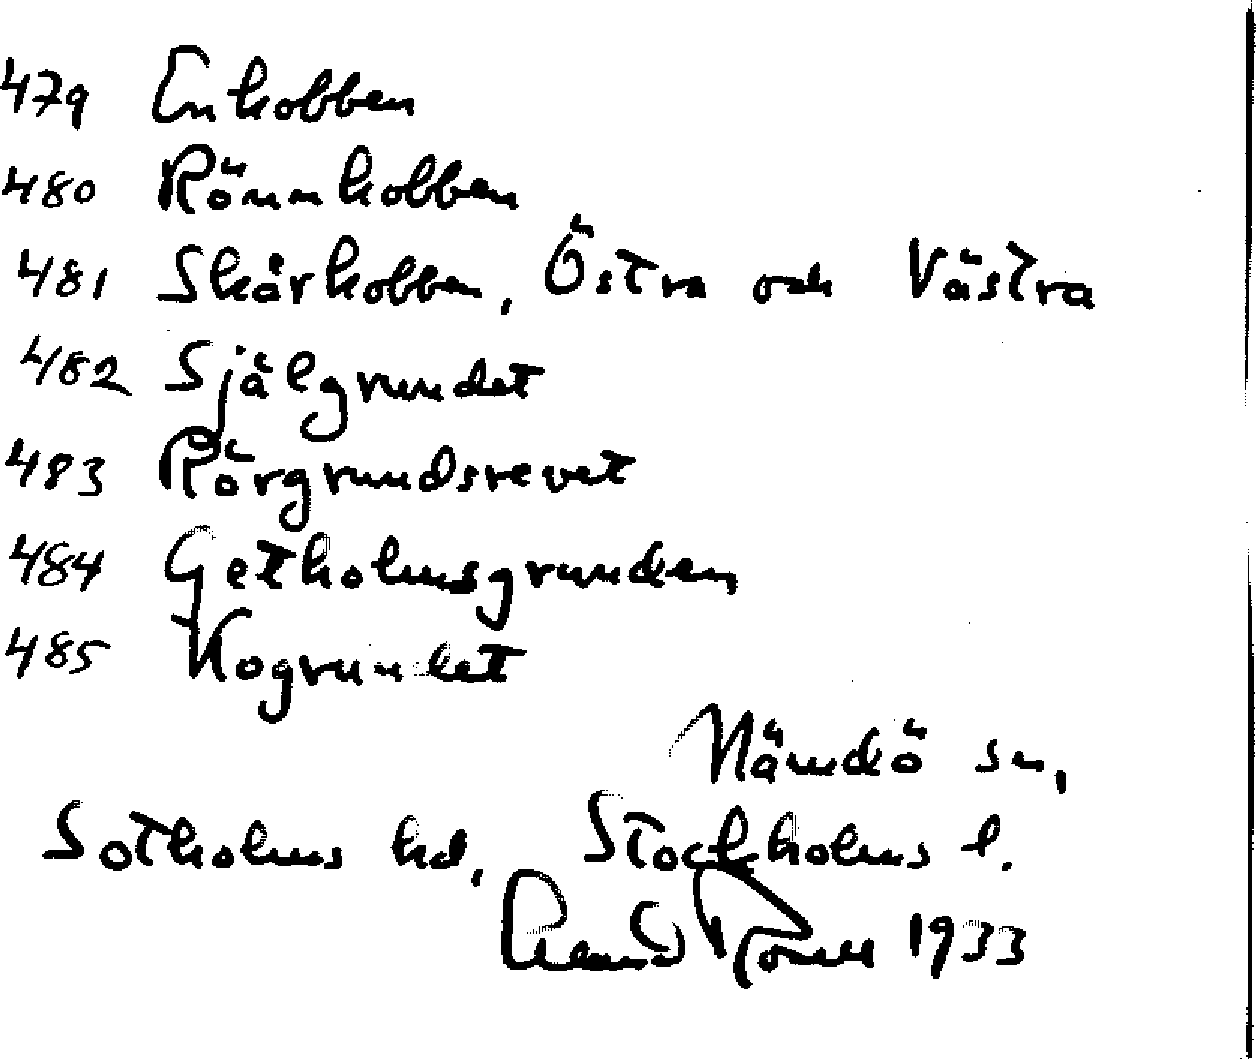 479 Enkobben
480 Rönnkobben
481 Skärkobben, Östra och Västra
482 Själgrundet
483 Rörgrundsrevet
484 Getholmsgrunden
485 Kogrundet
Nämdö sn,
Sotholms hd, Stockholms l.
1933